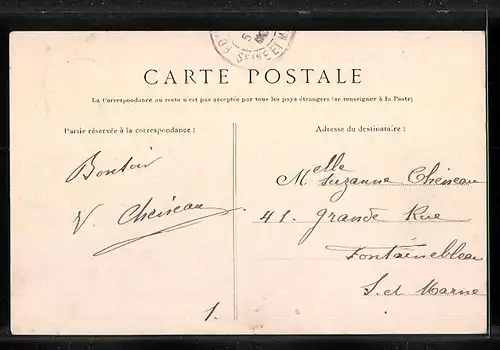 SEINE ET M
CARTE POSTALE
La Correspondance au recto n'est pas acceptée par tous les pays étrangers (se renseigner à la Poste)
Partie réservée à la correspondance :
Bonsoir
V. Cheiseau
1.
Adresse du destinataire :
Melle Suzanne Cheiseau
41. Grande Rue
Fontainebleau
S. et Marne